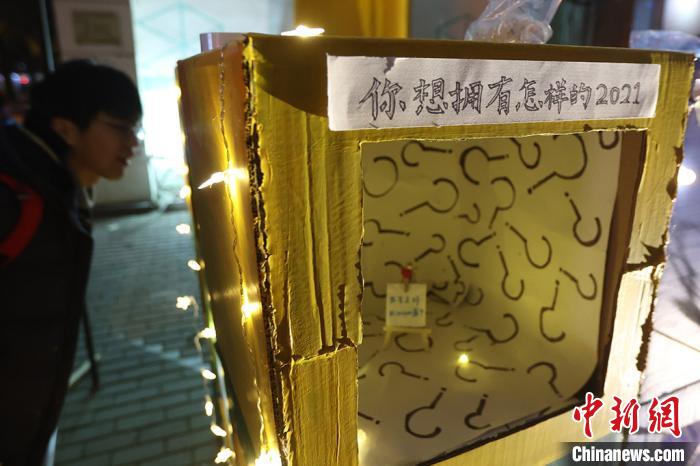 你想拥有怎样的2021
中新网
Chinanews.com